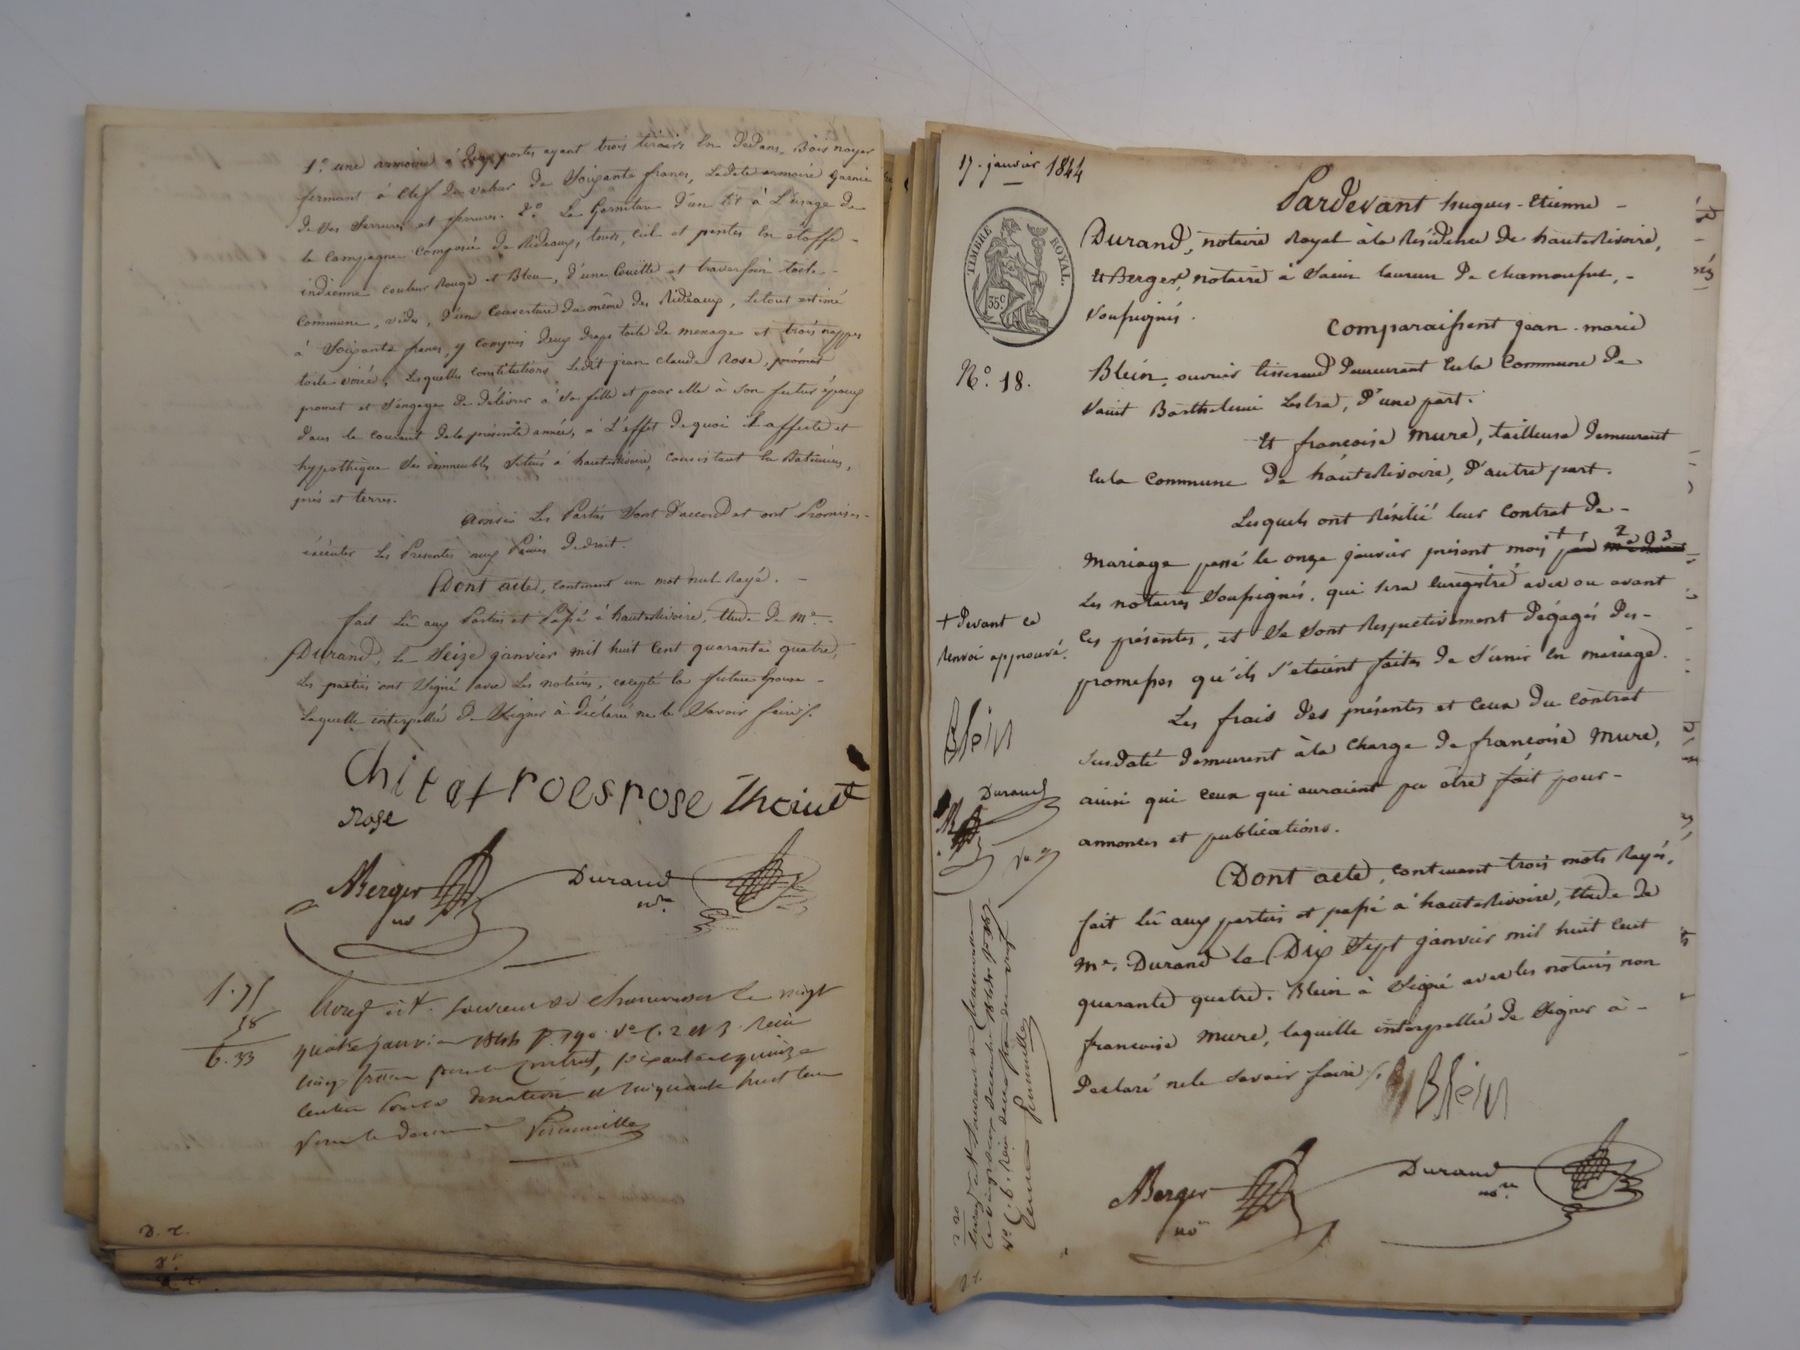 1.° une armoire à deux portes ayant trois tiroirs en dedans, Bois noyer
fermant à clef de valeur de soixante francs, Ladite armoire garnie
de ses serrures et ferrures. 2.° La Garniture d'un lit à L'usage de
la campagne composée de Rideaux, tours, ciel et pentes en étoffe
indienne couleur Rouge et Bleu, d'une Couette et traversin toile
commune, vides, d'une Couverture du même des Rideaux, Le tout estimé
à soixante francs, y compris deux draps toile de menage et trois nappes
toile Lesquelles constitutions Ledit jean claude Rose, prémet
promet et s'engage de délivrer à sa fille et pour elle à son futur époux
dans le courant de la présente année, à L'effet de quoi il affecte et
hypothèque ses immeubles situés à hauterivoire, consistant en Batiments,
prés et terres.
ainsi Les Parties sont d'accord et ont Promises
exécuter Les Presentes aux Peines de droit.
Dont acte, contenant un mot nul Rayé.
fait Lû aux Parties et Passé à hauterivoire, Etude de M.e
Durand, Le Seize janvier mil huit Cent quarante quatre,
Les parties ont signé avec Les notaires, excepté la future Epouse
Laquelle interpellée de signer à déclaré ne le savoir faire /.
Chitat roesrose
Rose
Berger Durand
no nre
1.75
58
6.33
Enreg. à St. Laurent de Chamousset le vingt
quatre janvier 1844 f. 190 Vo C. 2 et 3 Reçu
cinq francs pour le Contrat, soixante quinze
centimes pour donation et cinquante huit cen
pour le decime
D. R.
17. janvier 1844
TIMBRE ROYAL
35 c
N.° 18.
Pardevant hugues-Etienne
Durand, notaire Royal à la Résidence de hauterivoire,
Et Berger, notaire à Saint Laurent de Chamousset,
Soussignés.
Comparaissent jean-marie
Blein, ouvrier tisserand demeurant en la Commune de
Saint Barthelemi Lestra, d'une part.
Et francoise Mure, tailleuse demeurant
en la Commune de hauterivoire, d'autre part.
Lesquels ont Résilié leur Contrat de
Mariage passé le onze janvier présent mois + 1 2 3
Les notaires Soussignés, qui sera enregistré avec ou avant
Ces présentes, et Se sont Respectivement dégagés des
promesses qu'ils S'etaient faites de S'unir en mariage.
Les frais des présentes et ceux du contrat
Susdaté demeurent à la charge de francoise Mure,
ainsi que ceux qui auraient pu être fait pour
annonces et publications.
Dont acte, Contenant trois mots Rayés,
fait lû aux parties et passé à hauterivoire, Etude de
M.e Durand Le Dix Sept janvier mil huit cent
quarante quatre. Blein à Signé avec les notaires non
francoise Mure, laquelle interpellée de Signer à
Déclaré ne le savoir faire /.
Blein
Berger Durand
no nore
+ devant ce
Renvoi approuvé.
Blein
Durand